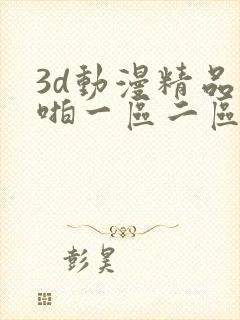 3d動漫精品
啪一區二區
彭昊